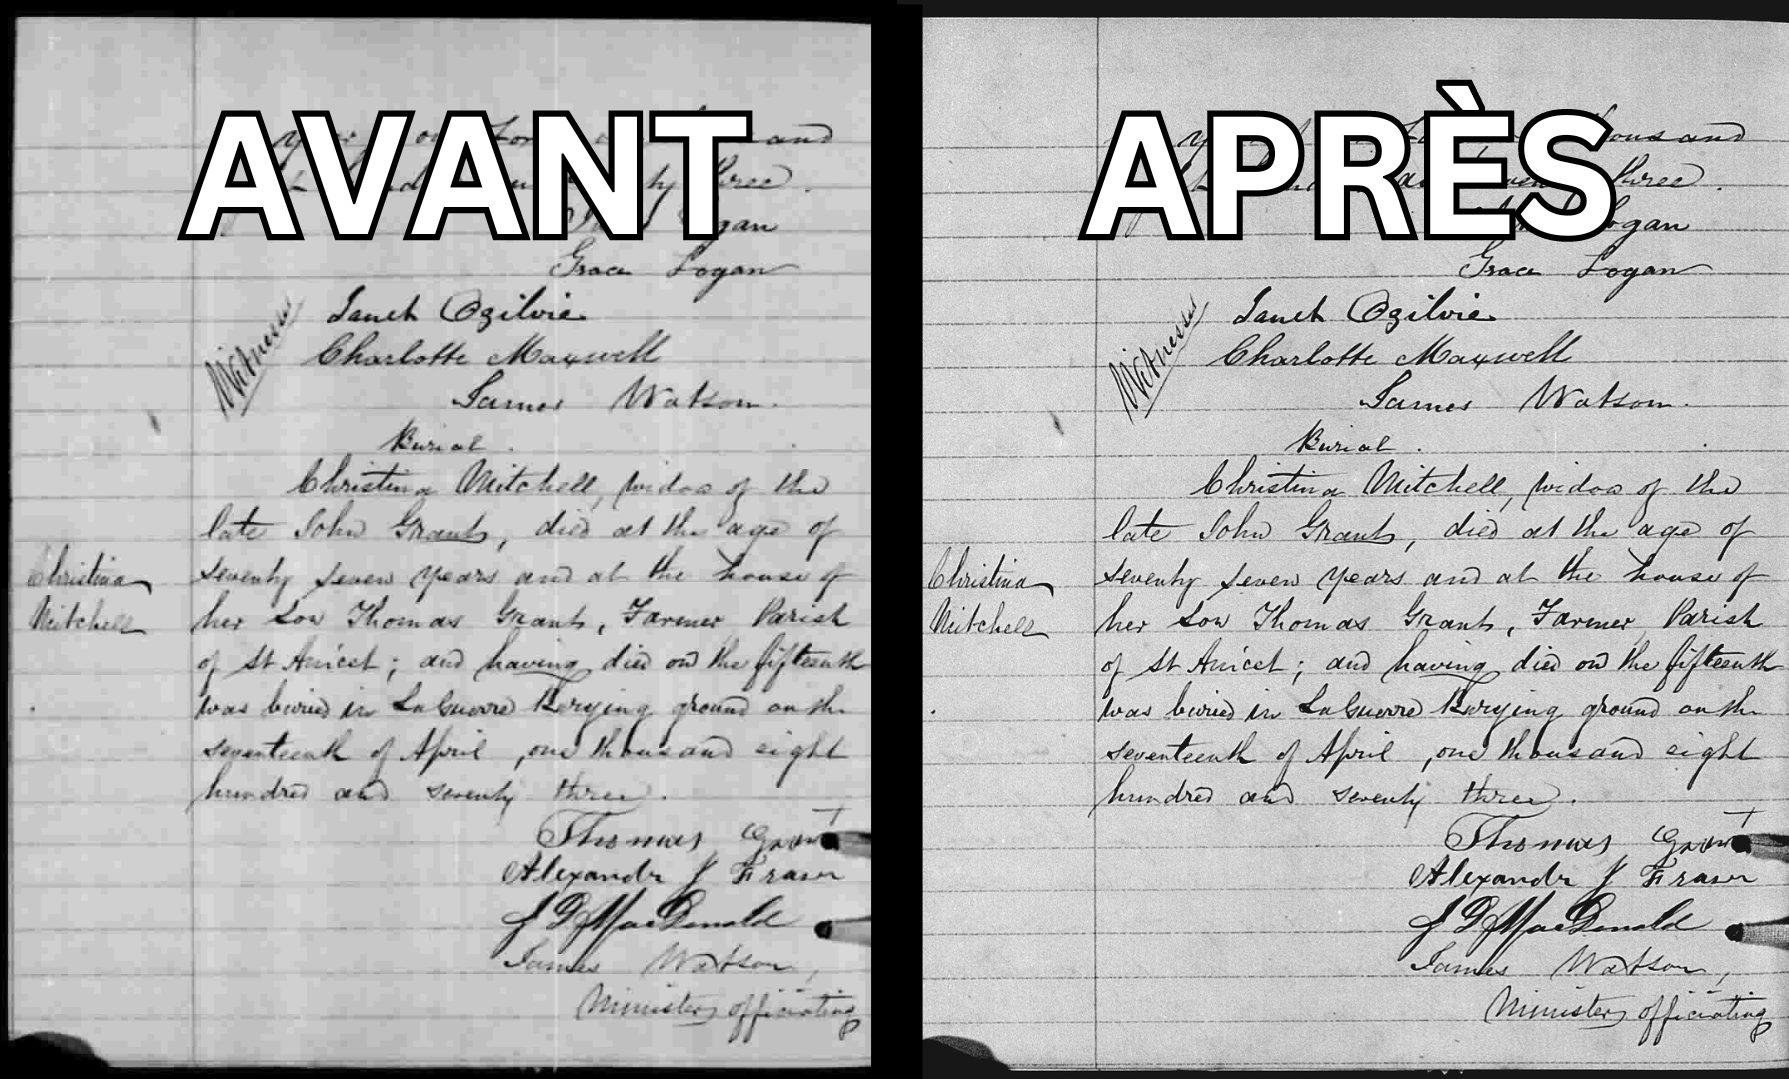 AVANT
and
three
Logan
Grace Logan
Witnesses
Janet Ogilvie
Charlotte Maxwell
James Watson.
Burial.
Christina Mitchell, widow of the
late John Grant, died at the age of
Christina
Mitchell
seventy seven years and at the house of
her son Thomas Grant, Farmer Parish
of St Anicet; and having died on the fifteenth
was buried in LaGuerre Burying ground on the
seventeenth of April, one thousand eight
hundred and seventy three.
Thomas Grant
Alexander J Fraser
J D MacDonald
James Watson,
Minister officiating
APRÈS
thousand
three.
Logan
Grace Logan
Witnesses
Janet Ogilvie.
Charlotte Maxwell
James Watson.
Burial.
Christina Mitchell, widow of the
late John Grant, died at the age of
Christina
Mitchell
seventy seven years and at the house of
her son Thomas Grant, Farmer Parish
of St Anicet; and having died on the fifteenth
was buried in LaGuerre Burying ground on the
seventeenth of April, one thousand eight
hundred and seventy three.
Thomas Grant
Alexander J Fraser
J D MacDonald
James Watson,
Minister officiating